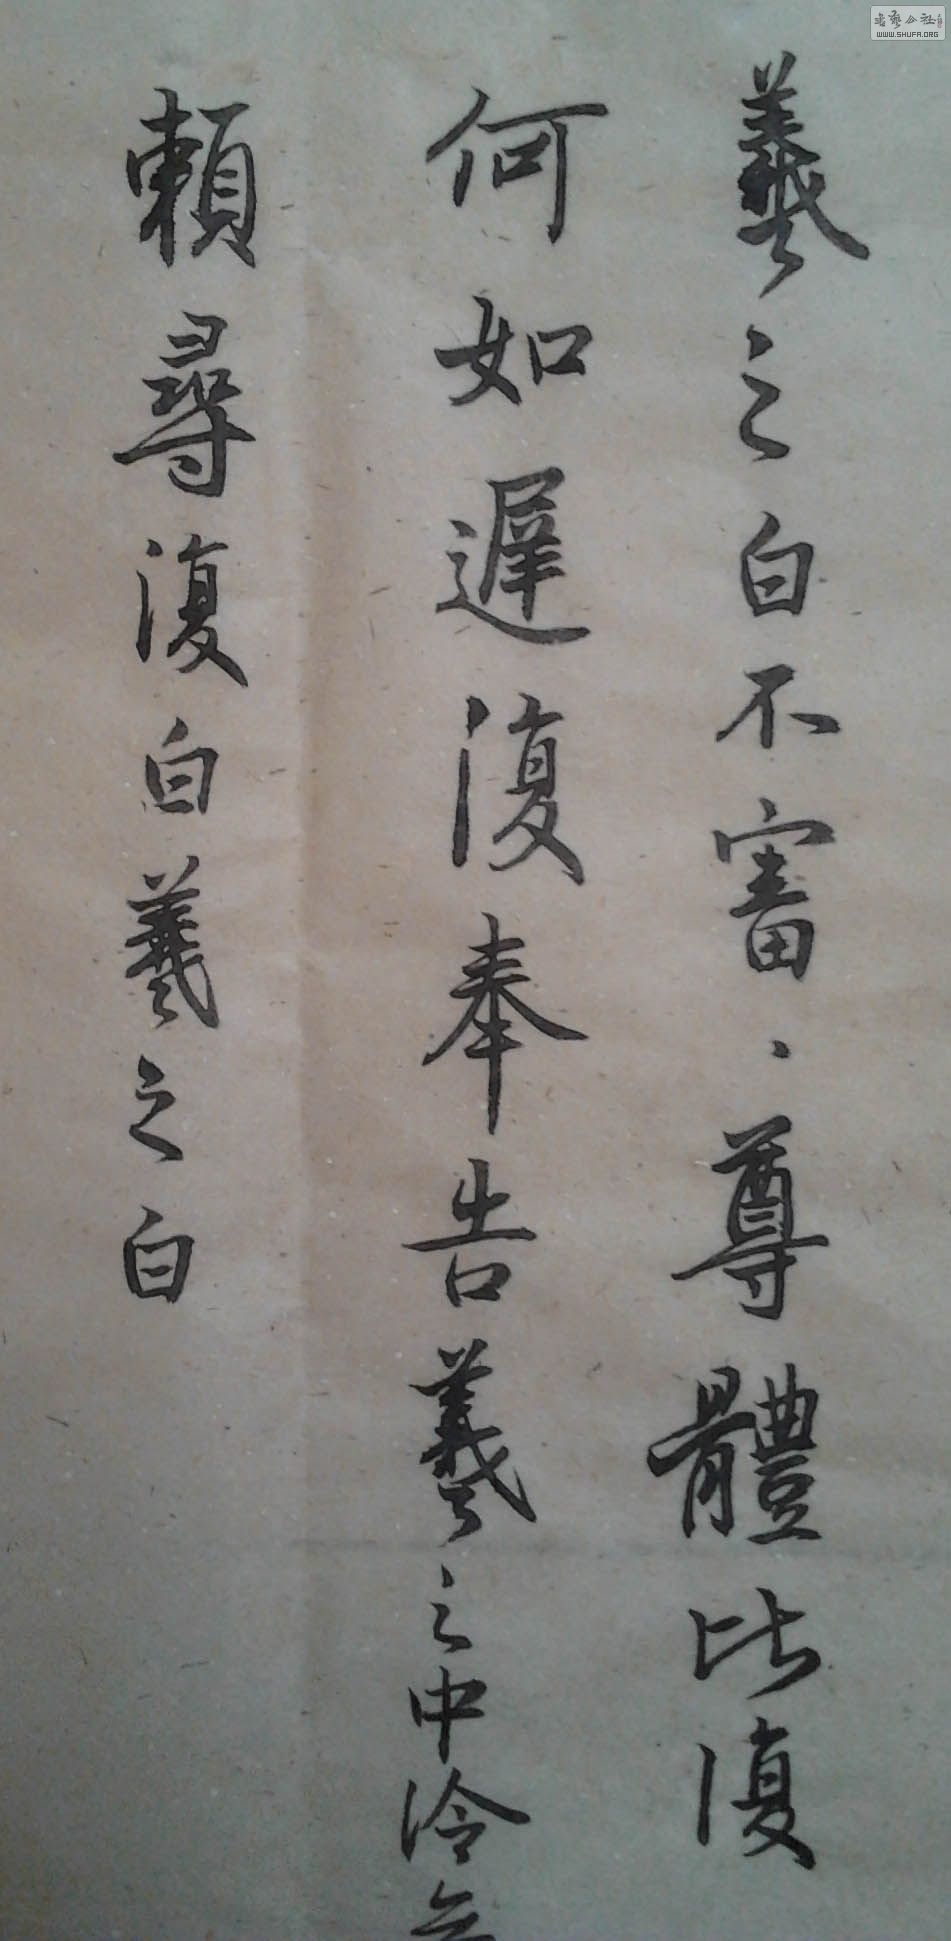 羲之白不審、尊體比復
何如遲復奉告羲之中冷無
頼尋復白羲之白
WWW.SHUFA.ORG